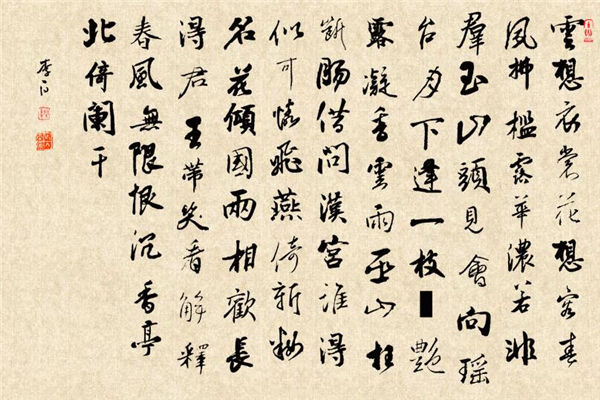 雲想衣裳花想容春
風拂檻露華濃若非
羣玉山頭見會向瑶
台月下逢一枝■艷
露凝香雲雨巫山枉
斷腸借問漢宮誰得
似可憐飛燕倚新妝
名花傾國兩相歡長
得君王帶笑看解釋
春風無限恨沉香亭
北倚闌干
李白